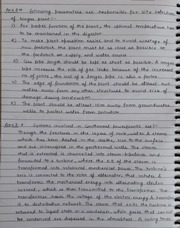 Ans 1 → Following parameters are necessary for site selection
of biogas plant:-
1) For better function of the plant, the optimal temperature has
to be maintained in the digester.
2) To make plant operation easier and to avoid wastage of
raw material, the plant must be as close as possible to
the feedstock as supply and water source.
3) Gas pipe length should be kept as short as possible. A longer
pipe increases the risk of gas leaks because of the increased
no. of joints, the cost of a longer pipe is also a factor.
4) The edge of foundation of the plant should be at least
metres away from any other structures to avoid risk of
damage during construction.
5) The plant should be at least 10m away from groundwater
wells to protect water from pollution.
Ans 2 → Systems involved in Geothermal powerplants are:-
Through the fractures in the layers of rock, water & steam
which has been heated in the
are intercepted in the geothermal wells. The steam
that is extracted is channeled into steam pipelines and
forwarded to a turbine, where the K.E of the steam is
transformed into rotational mechanical power. The turbine's
axis is connected to the rotor of alternator, that rotates &
transforms the mechanical energy into alternating electric
current, which is then transmitted to the transformer. The
transformer raises the voltage of the electric energy & transfers
it to distribution network. The steam that exits the turbine is
returned to liquid state in a condenser, while gases that cannot
be condensed are dispersed in the atmosphere. A cooling tower